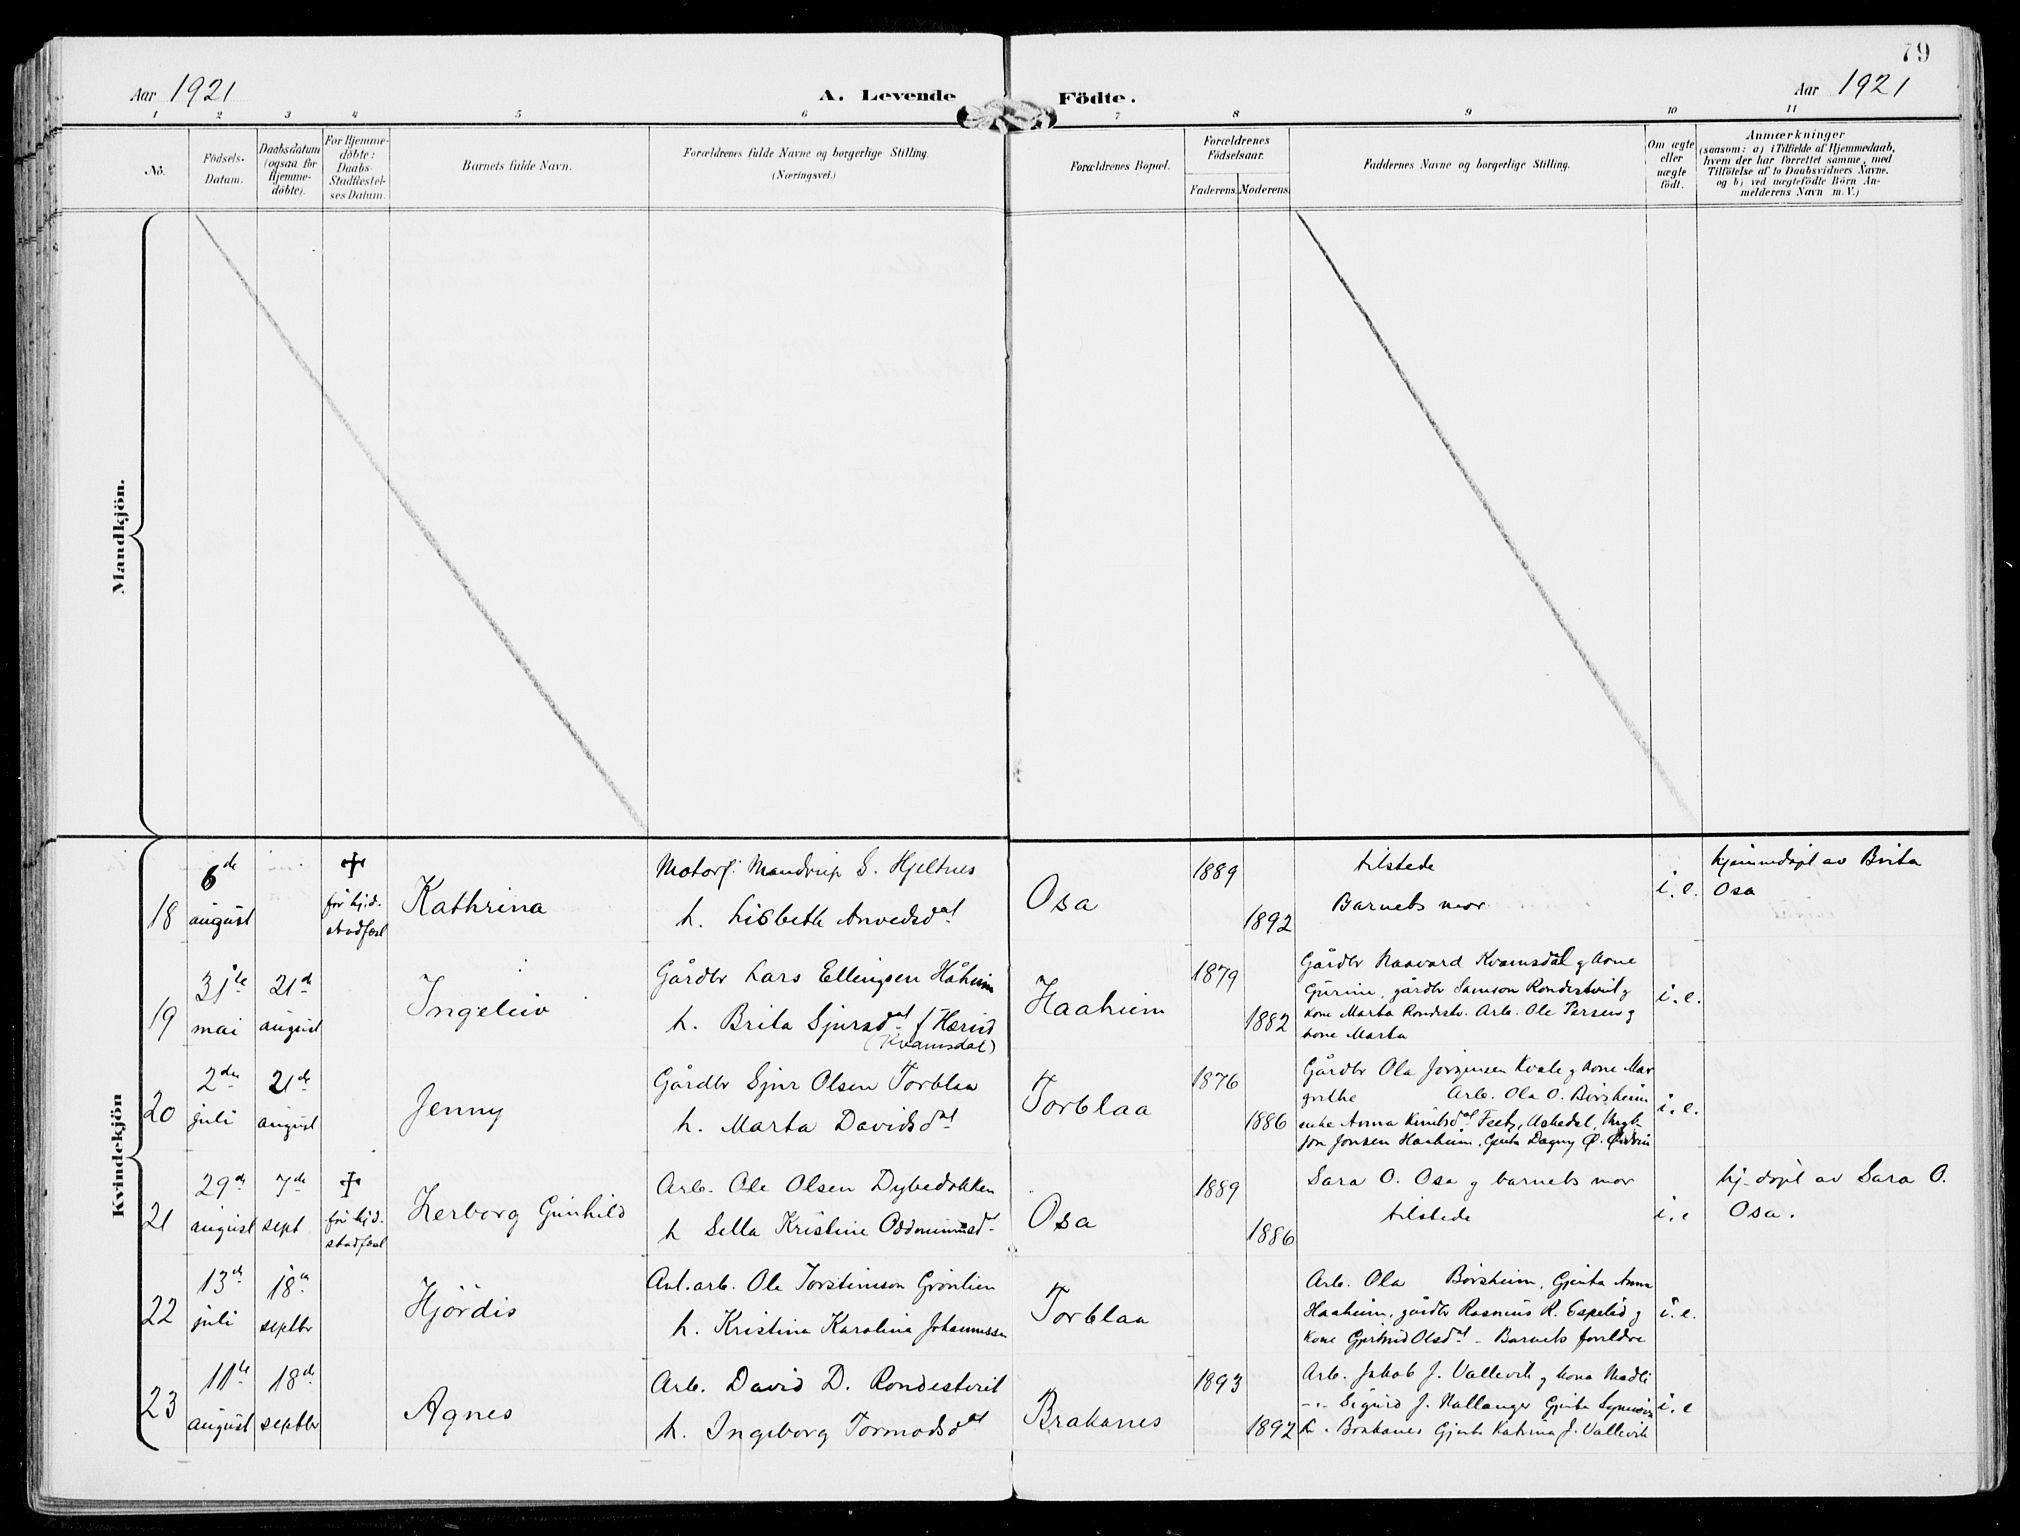 79
Aar 1921
A. Levende Födte.
Aar 1921
1 2 3 4 5 6 7 8 9 10 11
No.
Födsels-
Datum.
Daabsdatum
(ogsaa for
Hjemme-
döbte).
For Hjemme-
döbte:
Daabs-
Stadfestel-
ses Datum.
Barnets fulde Navn.
Forældrenes fulde Navne og borgerlige Stilling.
(Næringsvei.)
Forældrenes Bopæl.
Forældrenes
Födselsaar.
Faderens. Moderens.
Faddernes Navne og borgerlige Stilling.
Om ægte
eller
uægte
födt.
Anmærkninger
(saasom: a) i Tilfælde af Hjemmedaab,
hvem der har forrettet samme, med
Tilföielse af to Daabsvidners Navne.
og b) ved uægtefödte Börn An-
melderens Navn m. V.)
Mandkjön.
Kvindekjön
18
6de
august
+
før hjd.
stadfæst
Kathrina
Motorf. Mandrup S. Hjeltnes
h. Lisbeth Arvedsdat
Osa
1889
1892
tilstede
Barnets mor
i. e.
hjemmedøpt av Brita
Osa
19
31te
mai
21de
august
Ingeleiv
Gårdbr Lars Ellingsen Håheim
h. Brita Sjursdat f
(Kvamsdal)
Haaheim
1879
1882
Gårdbr Haavard Kvamsdal g kone
Gurine, gårdbr Samson Rondestveit g
kone Marta Rondestv. Arb. Ole Persen g
kone Marta
i. e.
20
2den
juli
21de
august
Jenny
Gårdbr Sjur Olsen Torblaa
h. Marta Davidsdat
Torblaa
1876
1886
Gårdbr Ola Jørgensen Kvale g kone Mar
grethe Arb. Ola O. Børsheim
enke Anna Knutsdat
Jonsen Haaheim, Gjenta Dagny Ø.
i. e.
21
29de
august
7de
sept
+
før hjd.
stadfæst
Herborg Gunhild
Arb. Ole Olsen Dybedokken
h Sella Kristine
Osa
1889
1886
Sara O. Osa g barnets mor
tilstede
i. e
hj-døpt av Sara O.
Osa.
22
13de
juli
18de
septbr
Hjördis
Anl. arb. Ole Torsteinson Grønlien
h. Kristina Karolina Johannessen
Torblaa
Arb. Ola Børsheim, Gjenta Anna
Haaheim, gårdbr Rasmus R. Espelid g
kone Gjertrud Olsdat - Barnets foreldre
i. e.
23
11te
august
18de
septbr
Agnes
Arb. David D. Rondestveit
h. Ingeborg Tormodsdat
Brakanes
1893
1892
Arb. Jakob J. Vallevik g kona Madli
-"- Sigurd J. Hallanger Gjenta
Brakanes Gjenta Katrina J. Vallevik
i. e